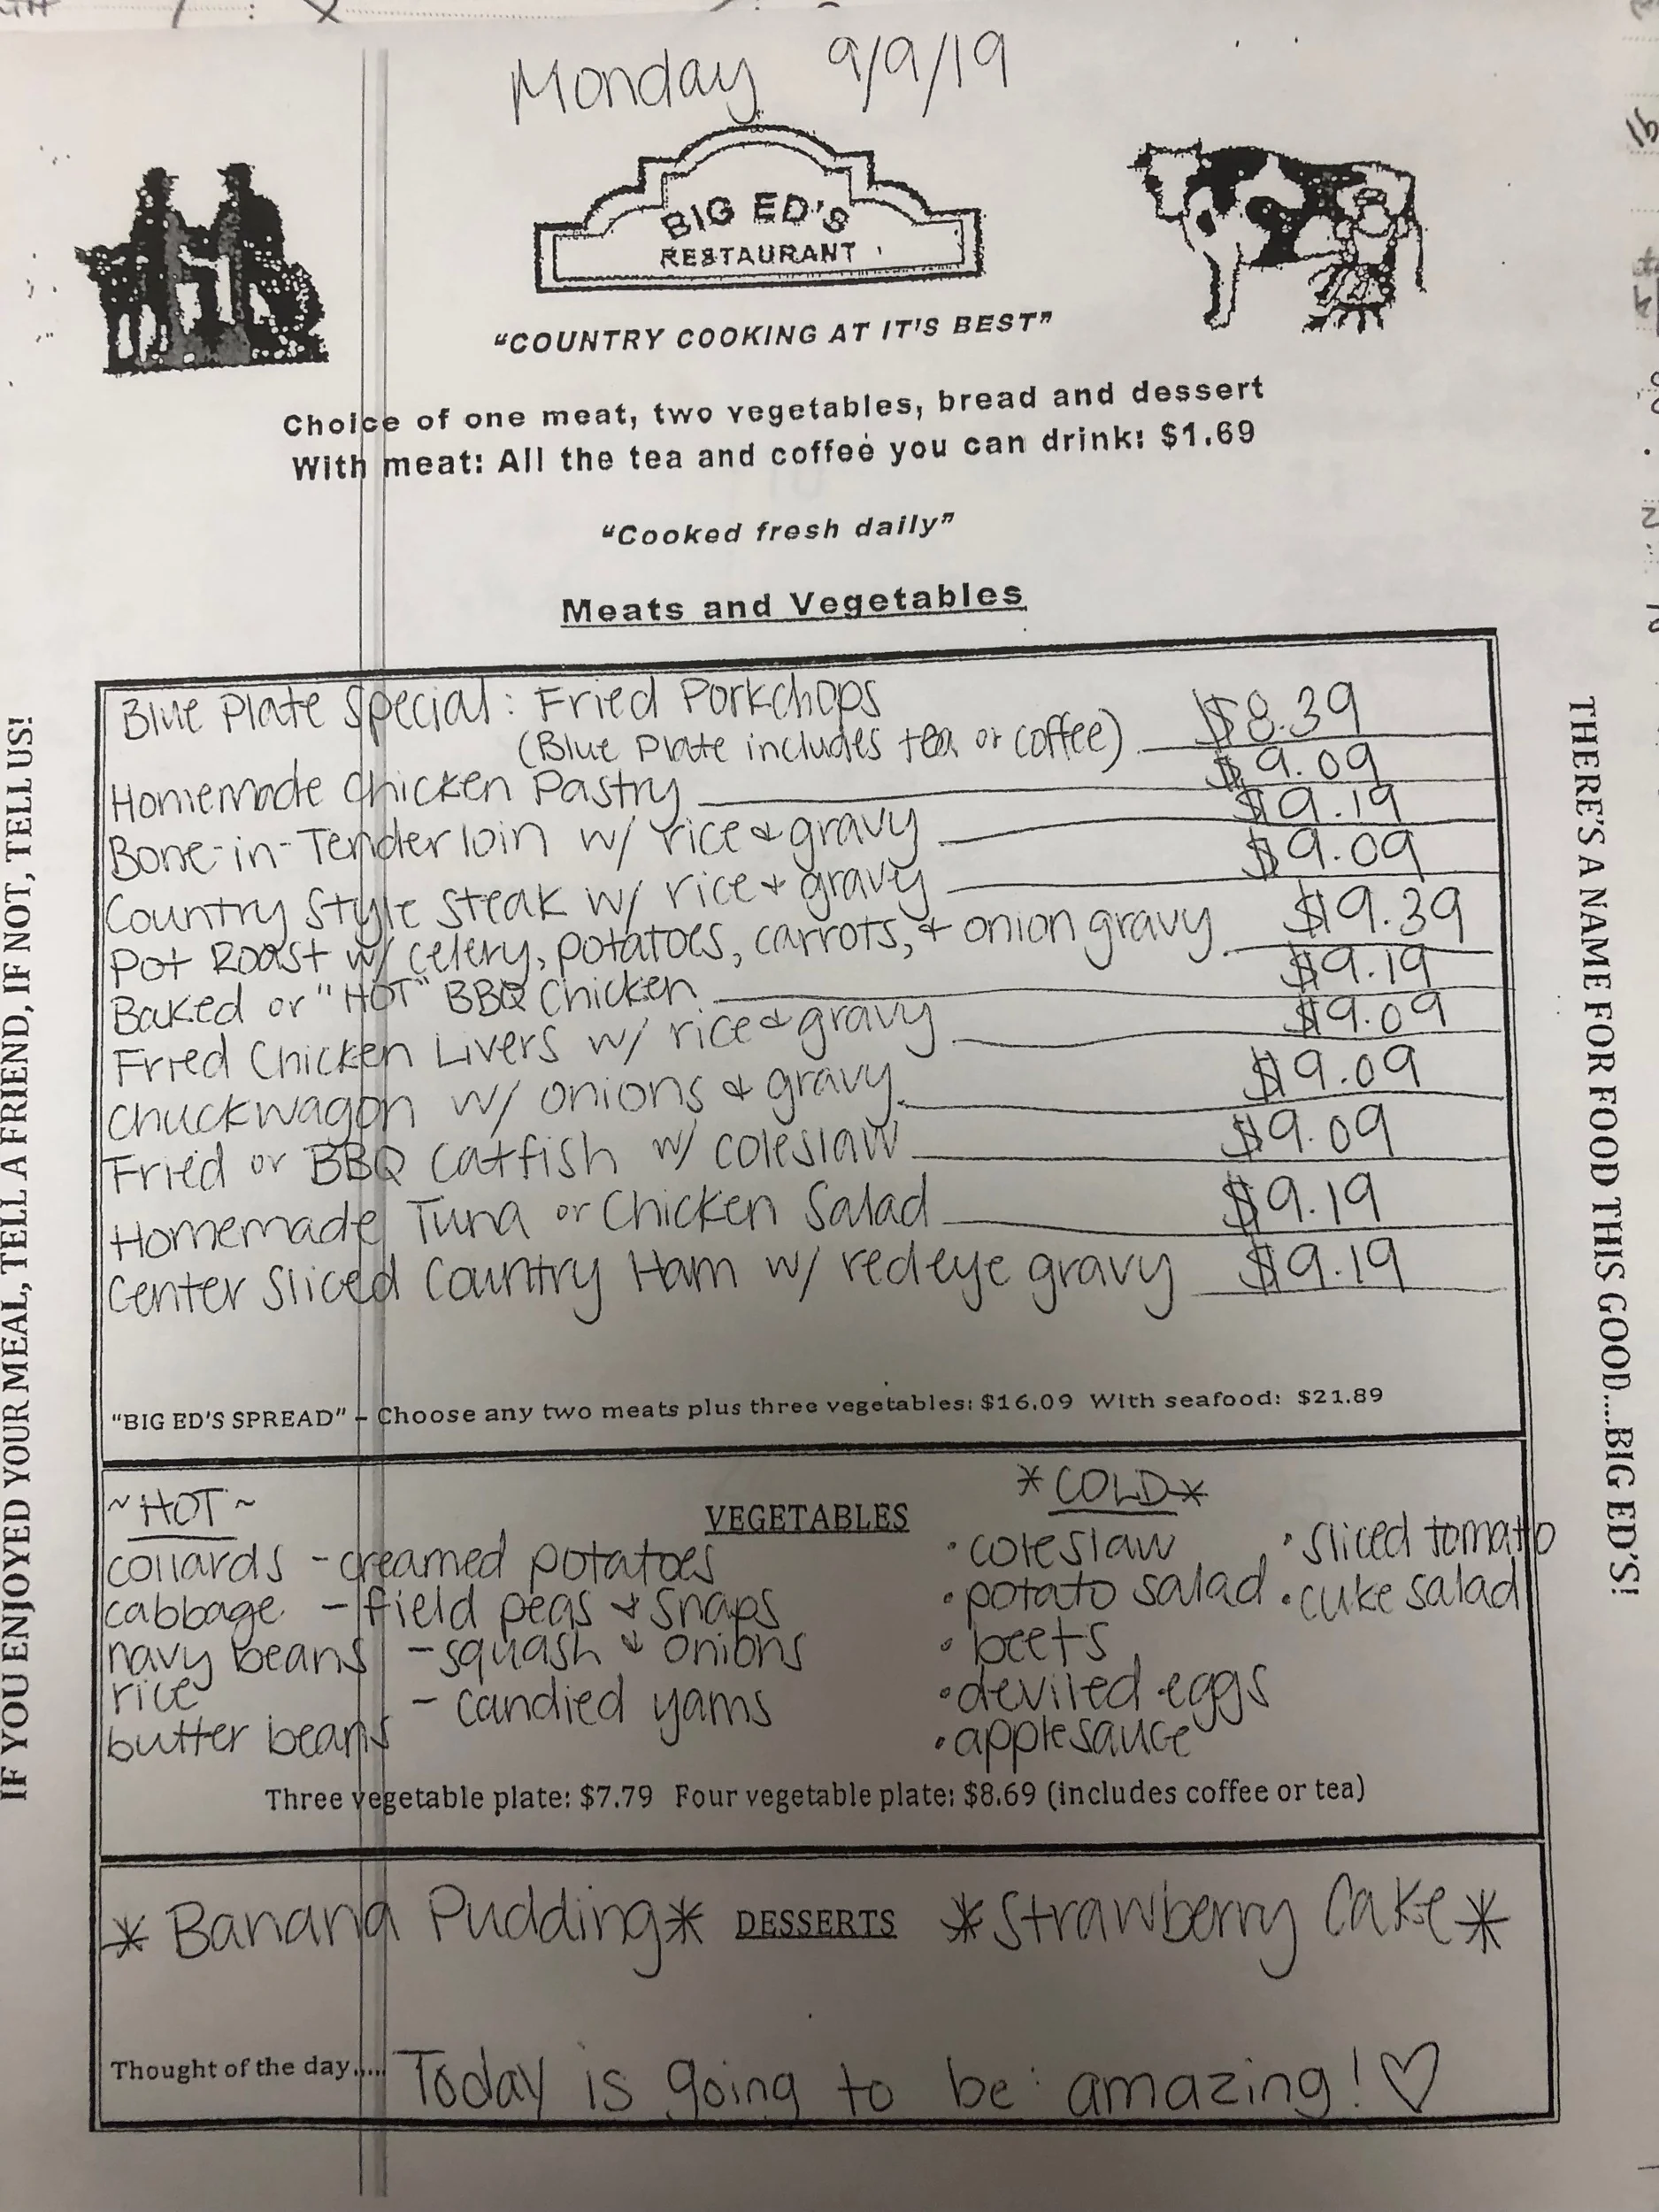 Monday 9/9/19
BIG ED'S
RESTAURANT
"COUNTRY COOKING AT IT'S BEST"
Choice of one meat, two vegetables, bread and dessert
With meat: All the tea and coffee you can drink: $1.69
"Cooked fresh daily"
Meats and Vegetables
Blue Plate Special: Fried Porkchops
(Blue Plate includes tea or coffee) $8.39
Homemade Chicken Pastry $9.09
Bone-in-Tenderloin w/ rice & gravy $9.19
Country Style Steak w/ rice & gravy $9.09
Pot Roast w/ celery, potatoes, carrots, & onion gravy $9.39
Baked or "HOT" BBQ Chicken $9.19
Fried Chicken Livers w/ rice & gravy $9.09
Chuckwagon w/ onions & gravy $9.09
Fried or BBQ Catfish w/ coleslaw $9.09
Homemade Tuna or Chicken Salad $9.19
Center Sliced Country Ham w/ redeye gravy $9.19
"BIG ED'S SPREAD" – Choose any two meats plus three vegetables: $16.09 With seafood: $21.89
~HOT~ VEGETABLES *COLD*
collards - creamed potatoes • coleslaw • sliced tomato
cabbage - field peas & snaps • potato salad • cuke salad
navy beans - squash & onions • beets
rice - candied yams • deviled eggs
butter beans • applesauce
Three vegetable plate: $7.79 Four vegetable plate: $8.69 (includes coffee or tea)
*Banana Pudding* DESSERTS *Strawberry Cake*
Thought of the day..... Today is going to be amazing! ♡
IF YOU ENJOYED YOUR MEAL, TELL A FRIEND, IF NOT, TELL US!
THERE'S A NAME FOR FOOD THIS GOOD....BIG ED'S!